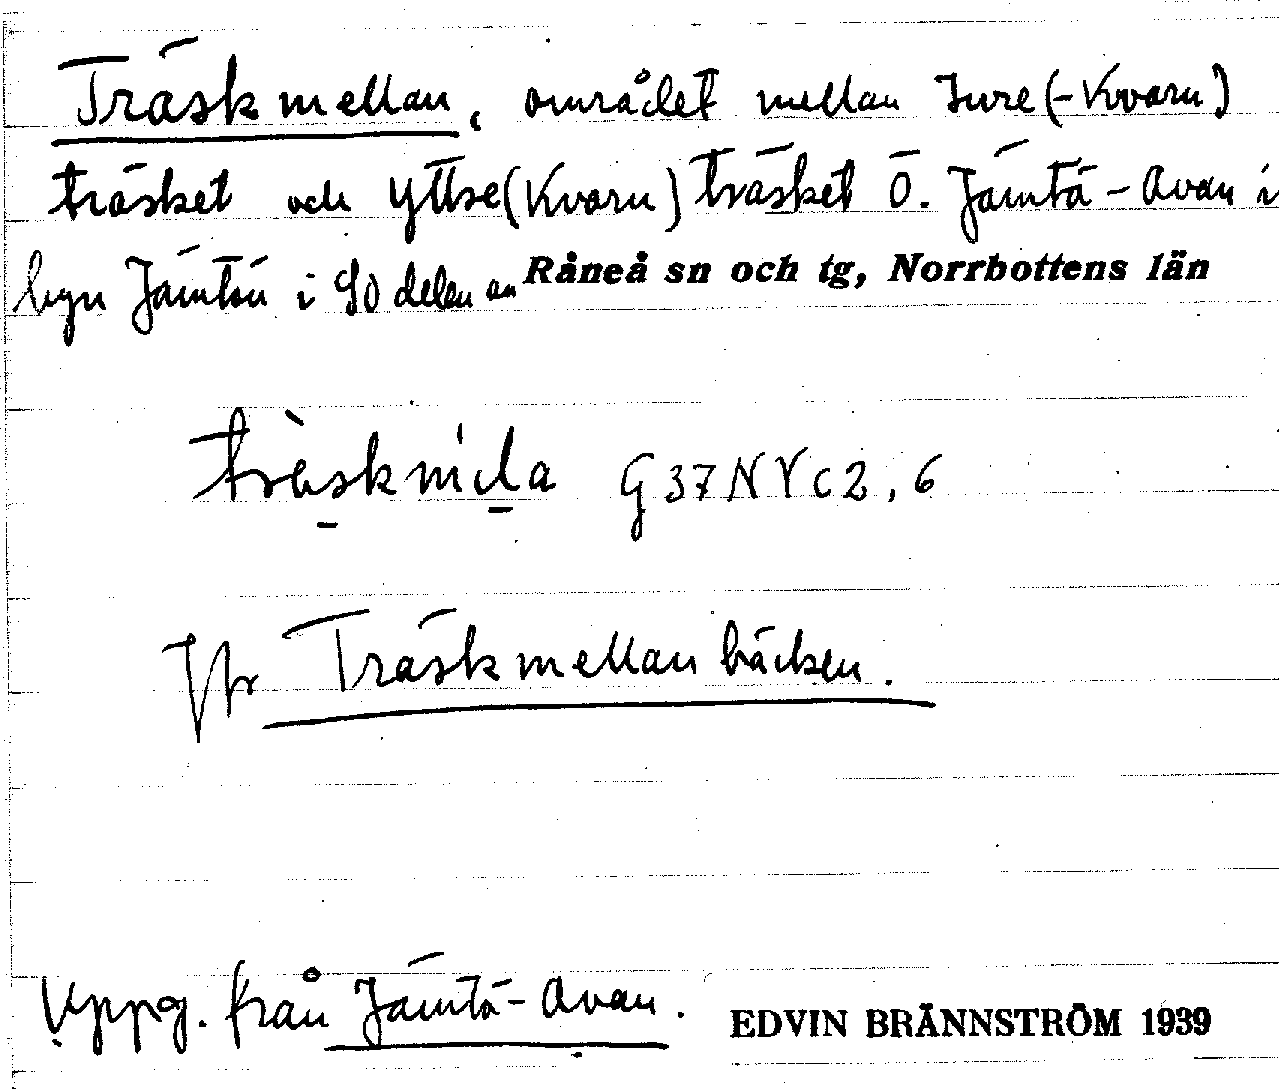 Träskmellan, området mellan Inre(-Kvarn)
träsket och Yttre(Kvarn)träsket Ö. Jämtö-Avan i
byn Jämtön i SO delen av Råneå sn och tg, Norrbottens län
G37NVc2,6
Jfr Träskmellanbäcken.
Uppg. från Jämtö-Avan.
EDVIN BRÄNNSTRÖM 1939